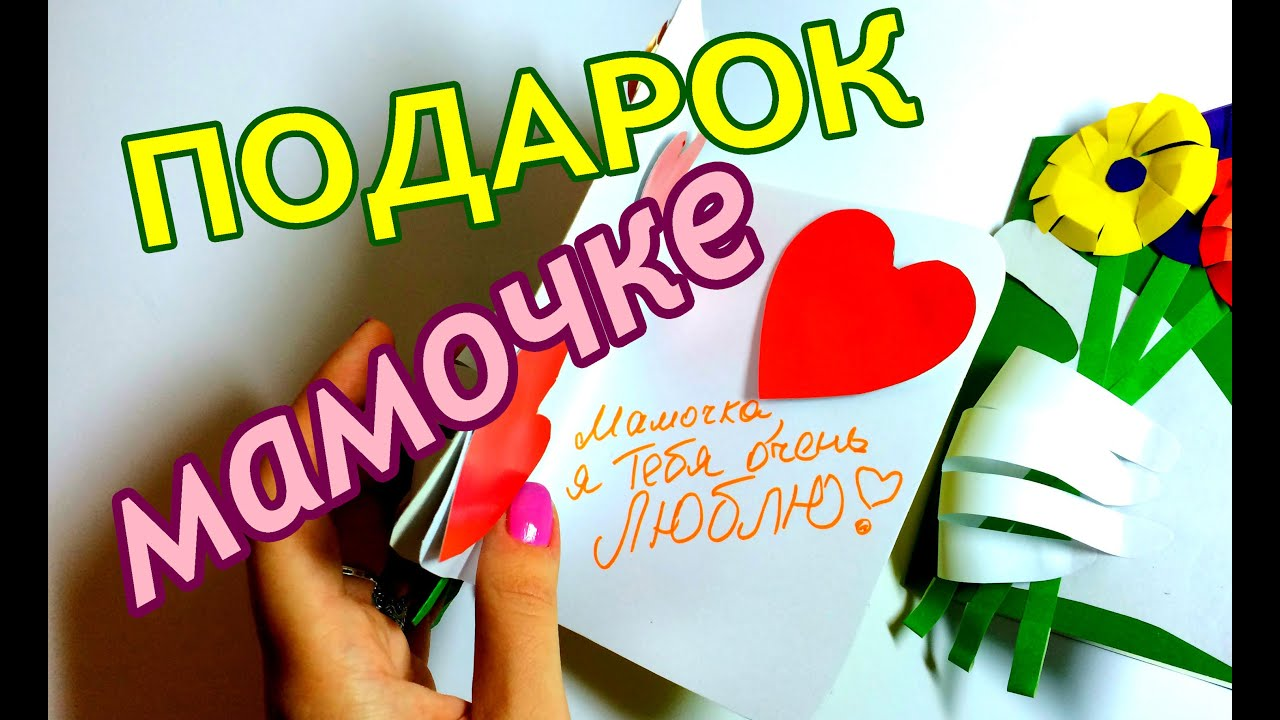 ПОДАРОК
мамочке
Мамочка,
я Тебя очень
ЛЮБЛЮ!